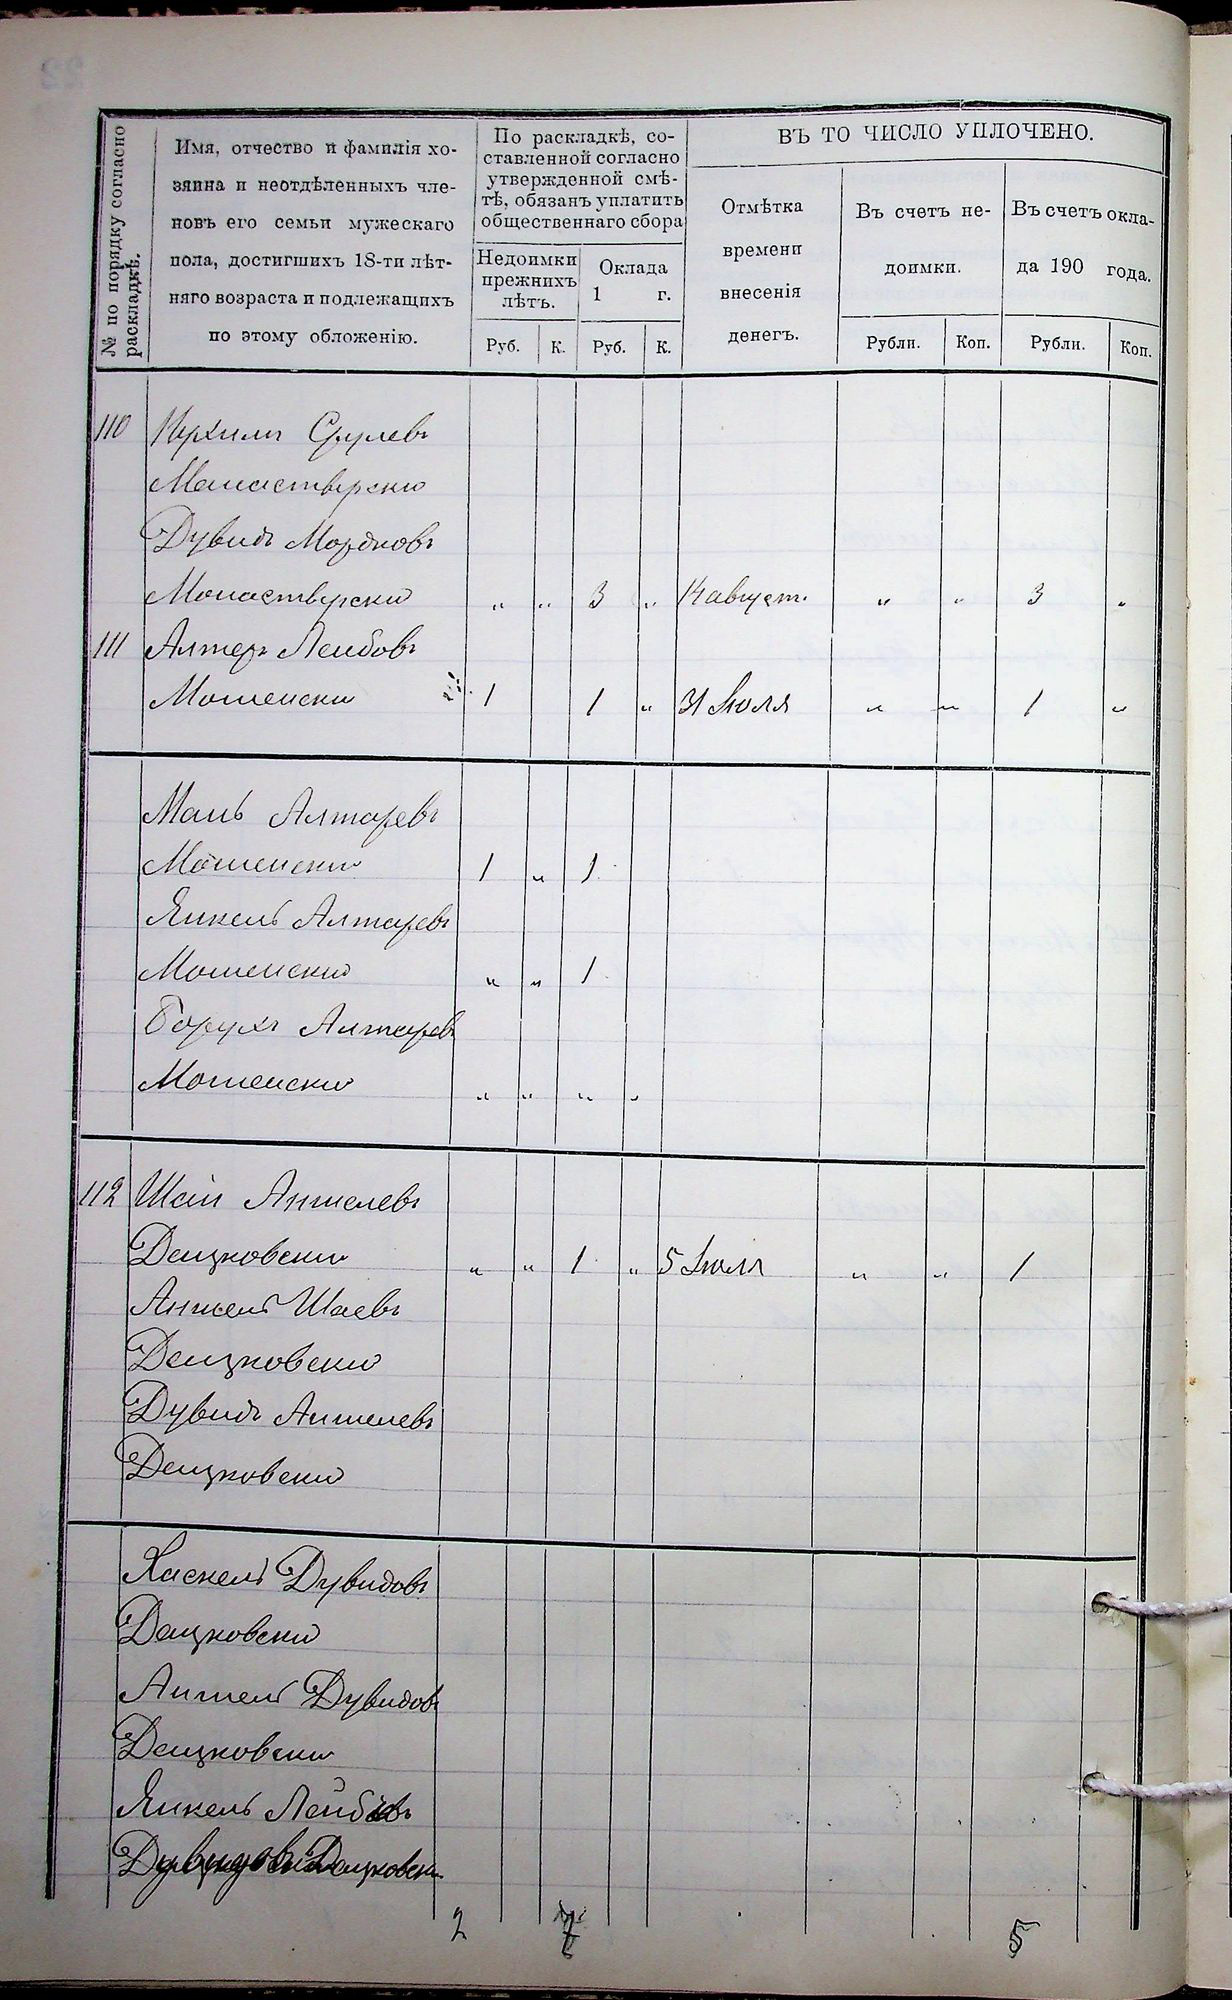 № по порядку согласно раскладкѣ.
Имя, отчество и фамилія хо-
зяина и неотдѣленныхъ чле-
новъ его семьи мужескаго
пола, достигшихъ 18-ти лѣт-
няго возраста и подлежащихъ
по этому обложенію.
По раскладкѣ, со-
ставленной согласно
утвержденной смѣ-
тѣ, обязанъ уплатить
общественнаго сбора
Недоимки
прежнихъ
лѣтъ.
Оклада
1 г.
Руб. К. Руб. К.
ВЪ ТО ЧИСЛО УПЛОЧЕНО.
Отмѣтка
времени
внесенія
денегъ.
Въ счетъ не-
доимки.
Рубли. Коп.
Въ счетъ окла-
да 190 года.
Рубли. Коп.
110 Срулевъ
Монастырски
Дувидъ Мордковъ
Монастырски " " 3 " 14 август. " " 3 "
111 Алтеръ Лейбовъ
Мошенски 1 1 " 31 Июля " " 1 "
Мань Алтеровъ
Мошенски 1 " 1
Янкель Алтеровъ
Мошенски " " 1
Борухъ Алтеровъ
Мошенски " " " "
112 Шая Аншелевъ
Децковски " " 1 " 5 Июля " " 1
Аншель Шаевъ
Децковски
Дувидъ Аншелевъ
Децковски
Хаскель Дувидовъ
Децковски
Аншель Дувидовъ
Децковски
Янкель Лейбовъ
Децковски
2 7 5